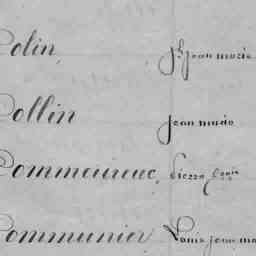 Colin, Jh jean marie
Collin jean marie
Commaireuc, Pierre Louis
Communier Louis jean ma